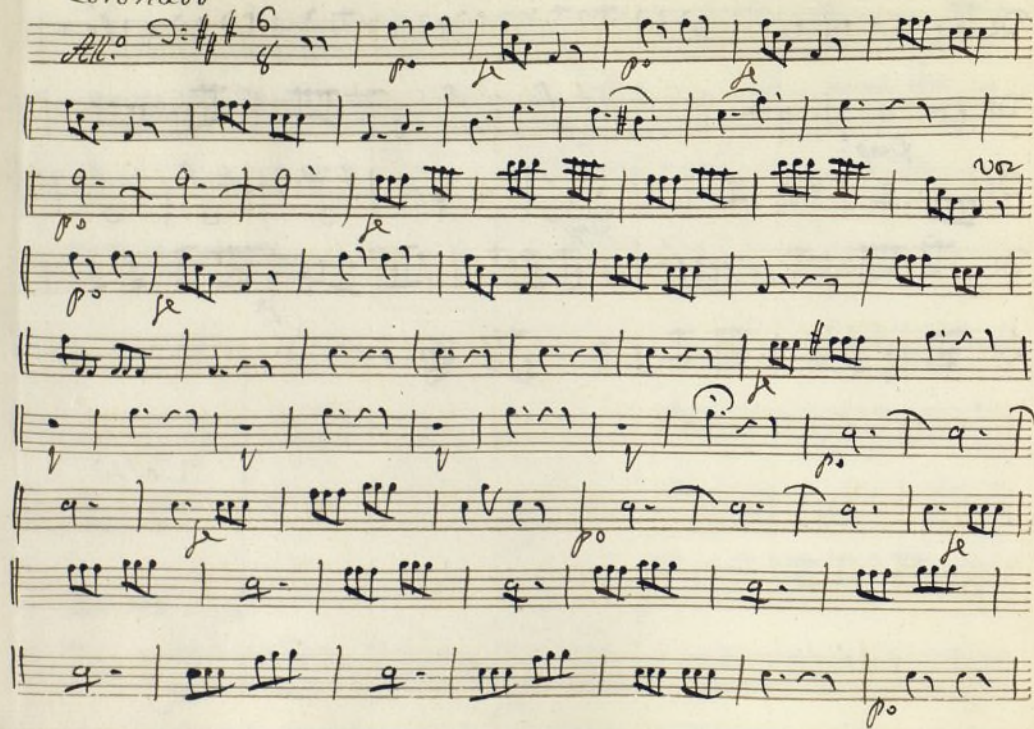 All.º 6 8
po fe po fe
po fe voz
po fe
fe
po
fe po fe
po